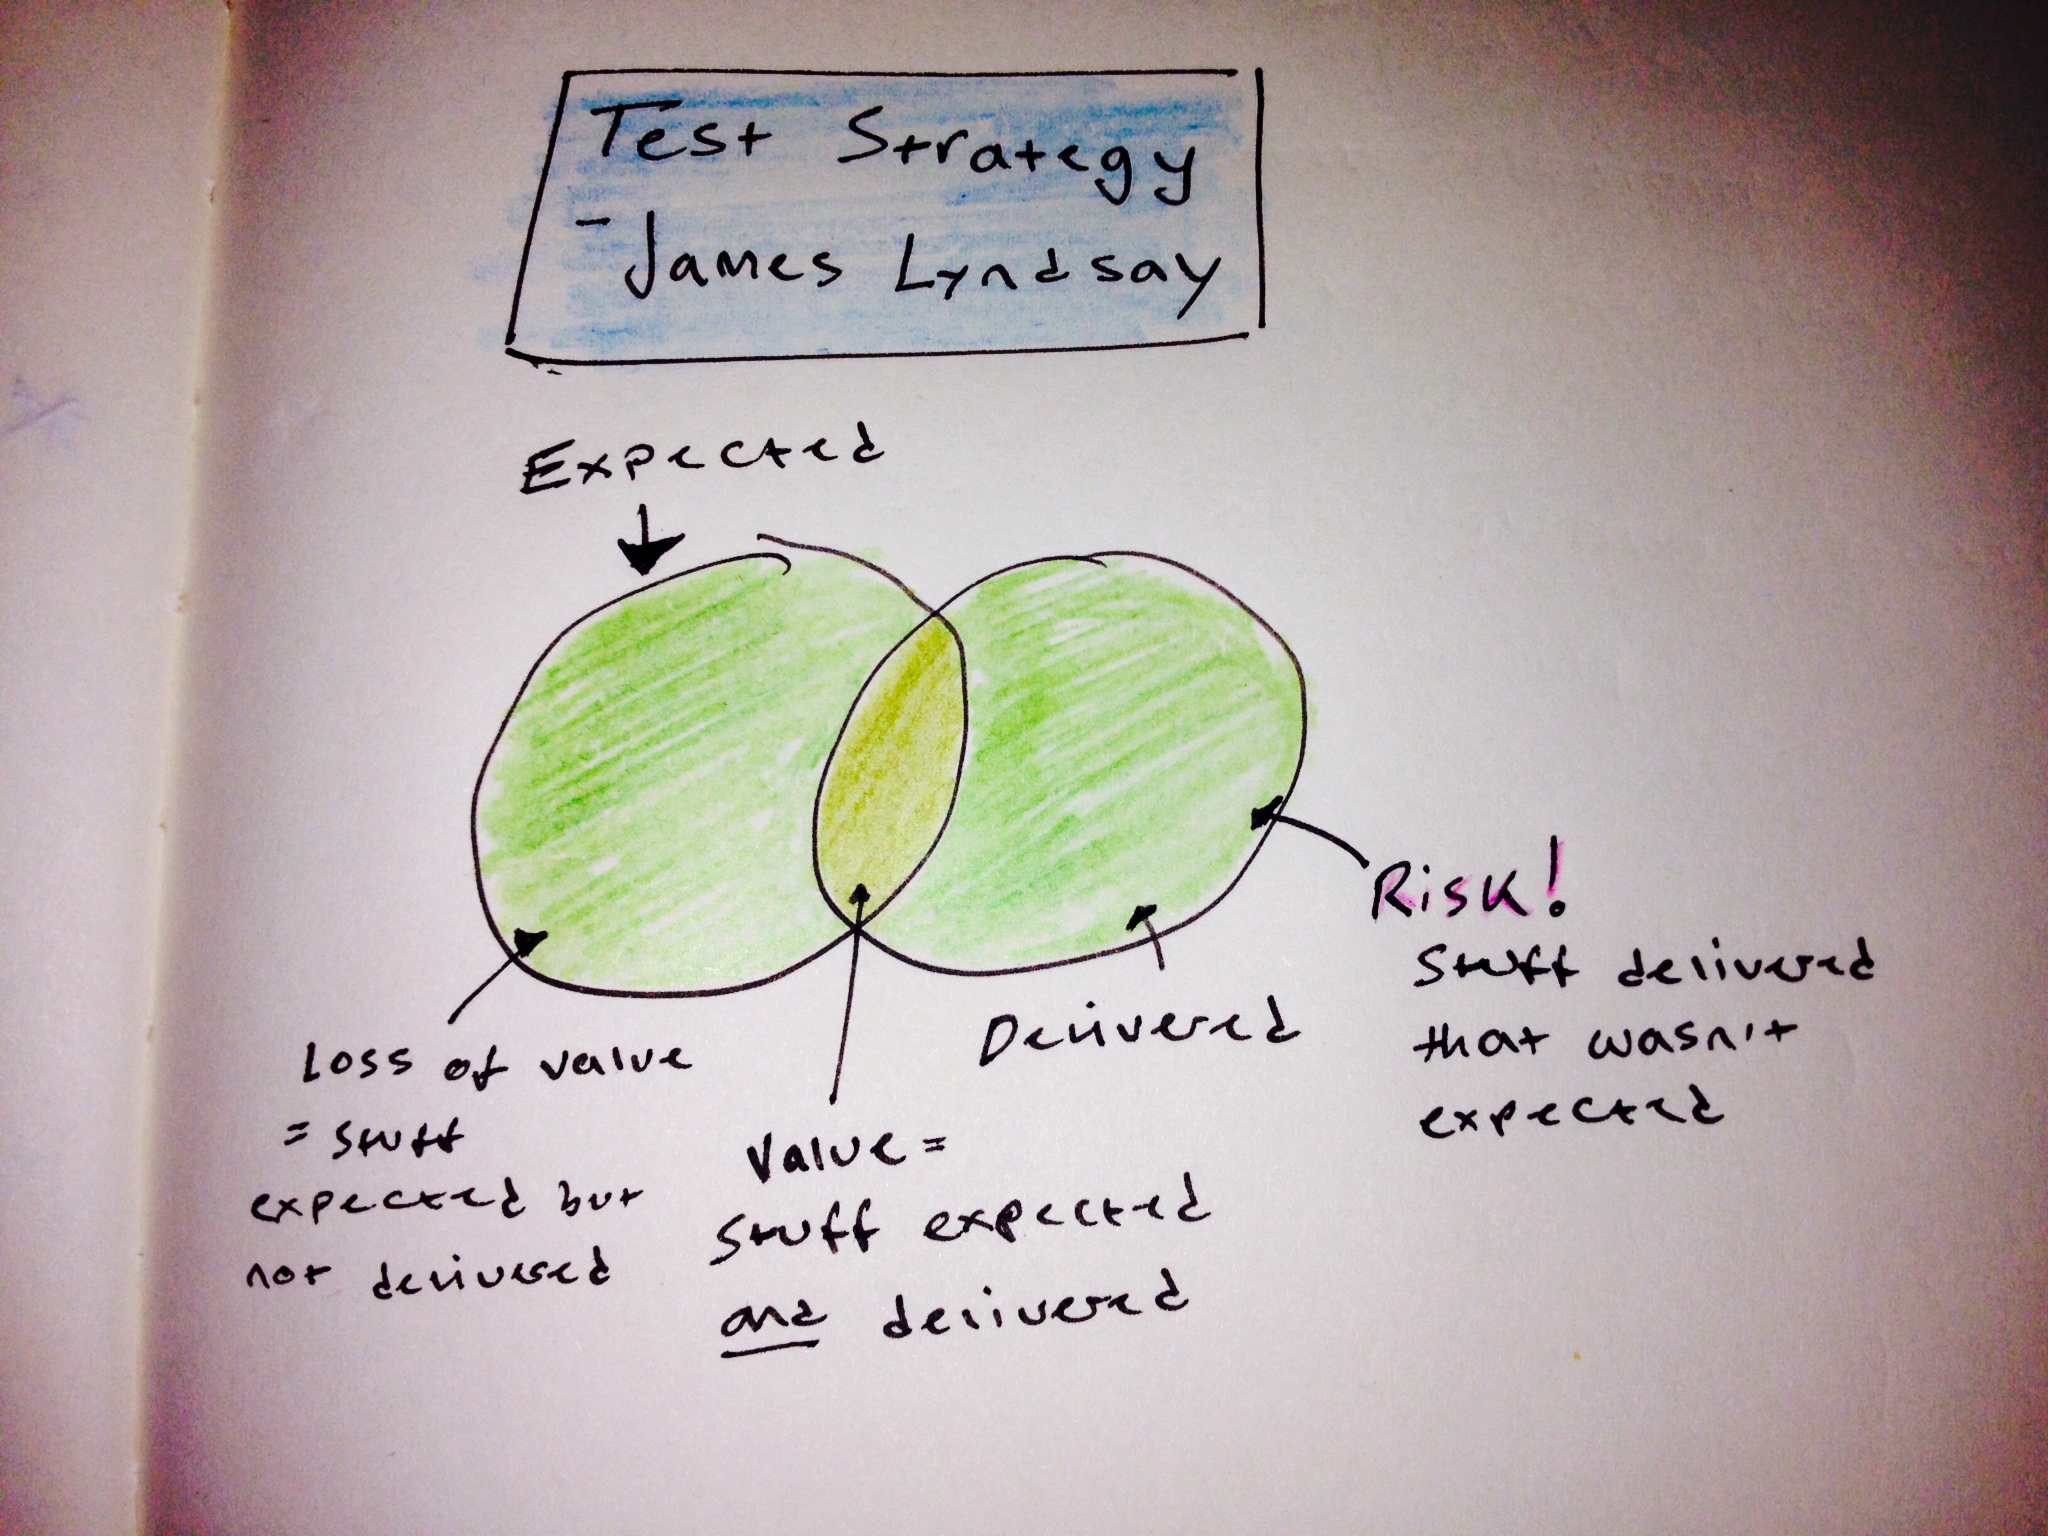 Test Strategy
- James Lyndsay
Expected
Risk!
Stuff delivered
that wasn't
expected
Delivered
Loss of value
= stuff
expected but
not delivered
Value =
Stuff expected
and delivered